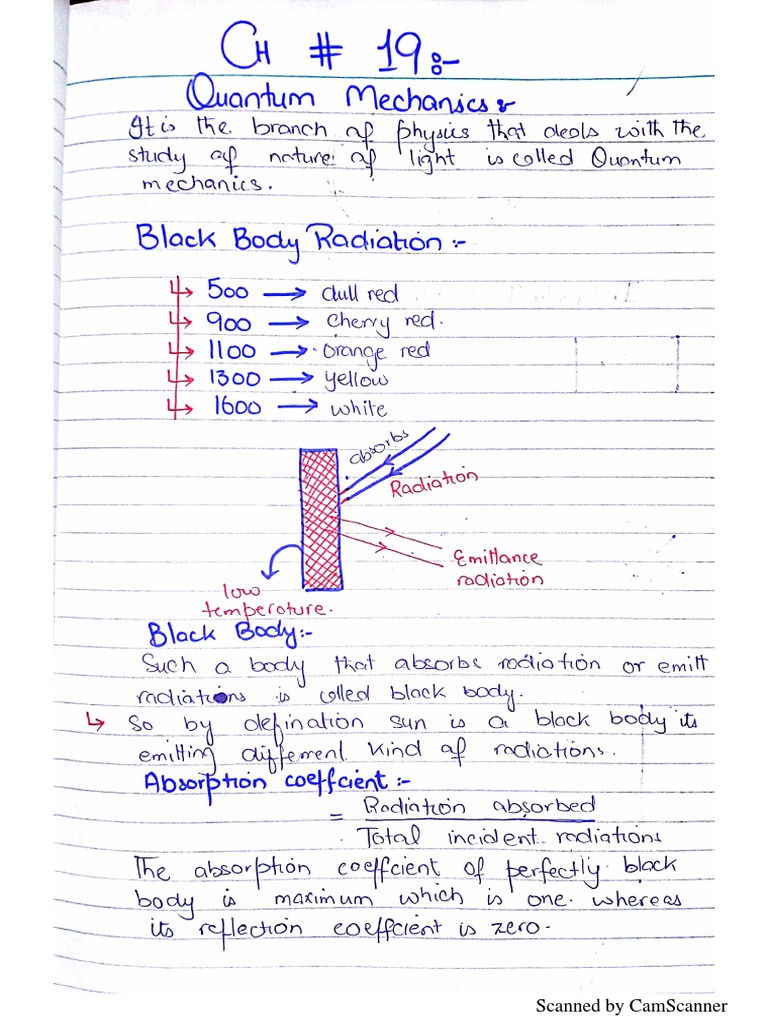 CH # 19:-
Quantum Mechanics:-
It is the branch of physics that deals with the
study of nature of light is called Quantum
mechanics.
Black Body Radiation:-
↳ 500 → dull red
↳ 900 → cherry red.
↳ 1100 → orange red
↳ 1300 → yellow
↳ 1600 → white
absorbs
Radiation
Emittance
radiation
low
temperature.
Black Body:-
Such a body that absorbs radiation or emitt
radiations is called black body.
↳ So by defination sun is a black body its
emitting different kind of radiations.
Absorption coeffcient:-
= Radiation absorbed
Total incident radiations
The absorption coeffcient of perfectly black
body is maximum which is one. whereas
its reflection coeffcient is zero.
Scanned by CamScanner